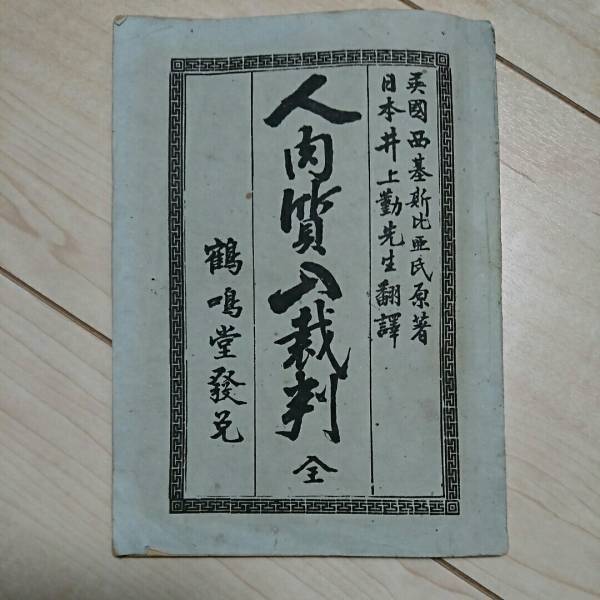 英國西基斯比亜氏原著
日本井上勤先生翻譯
人肉質入裁判 全
鶴鳴堂發兌